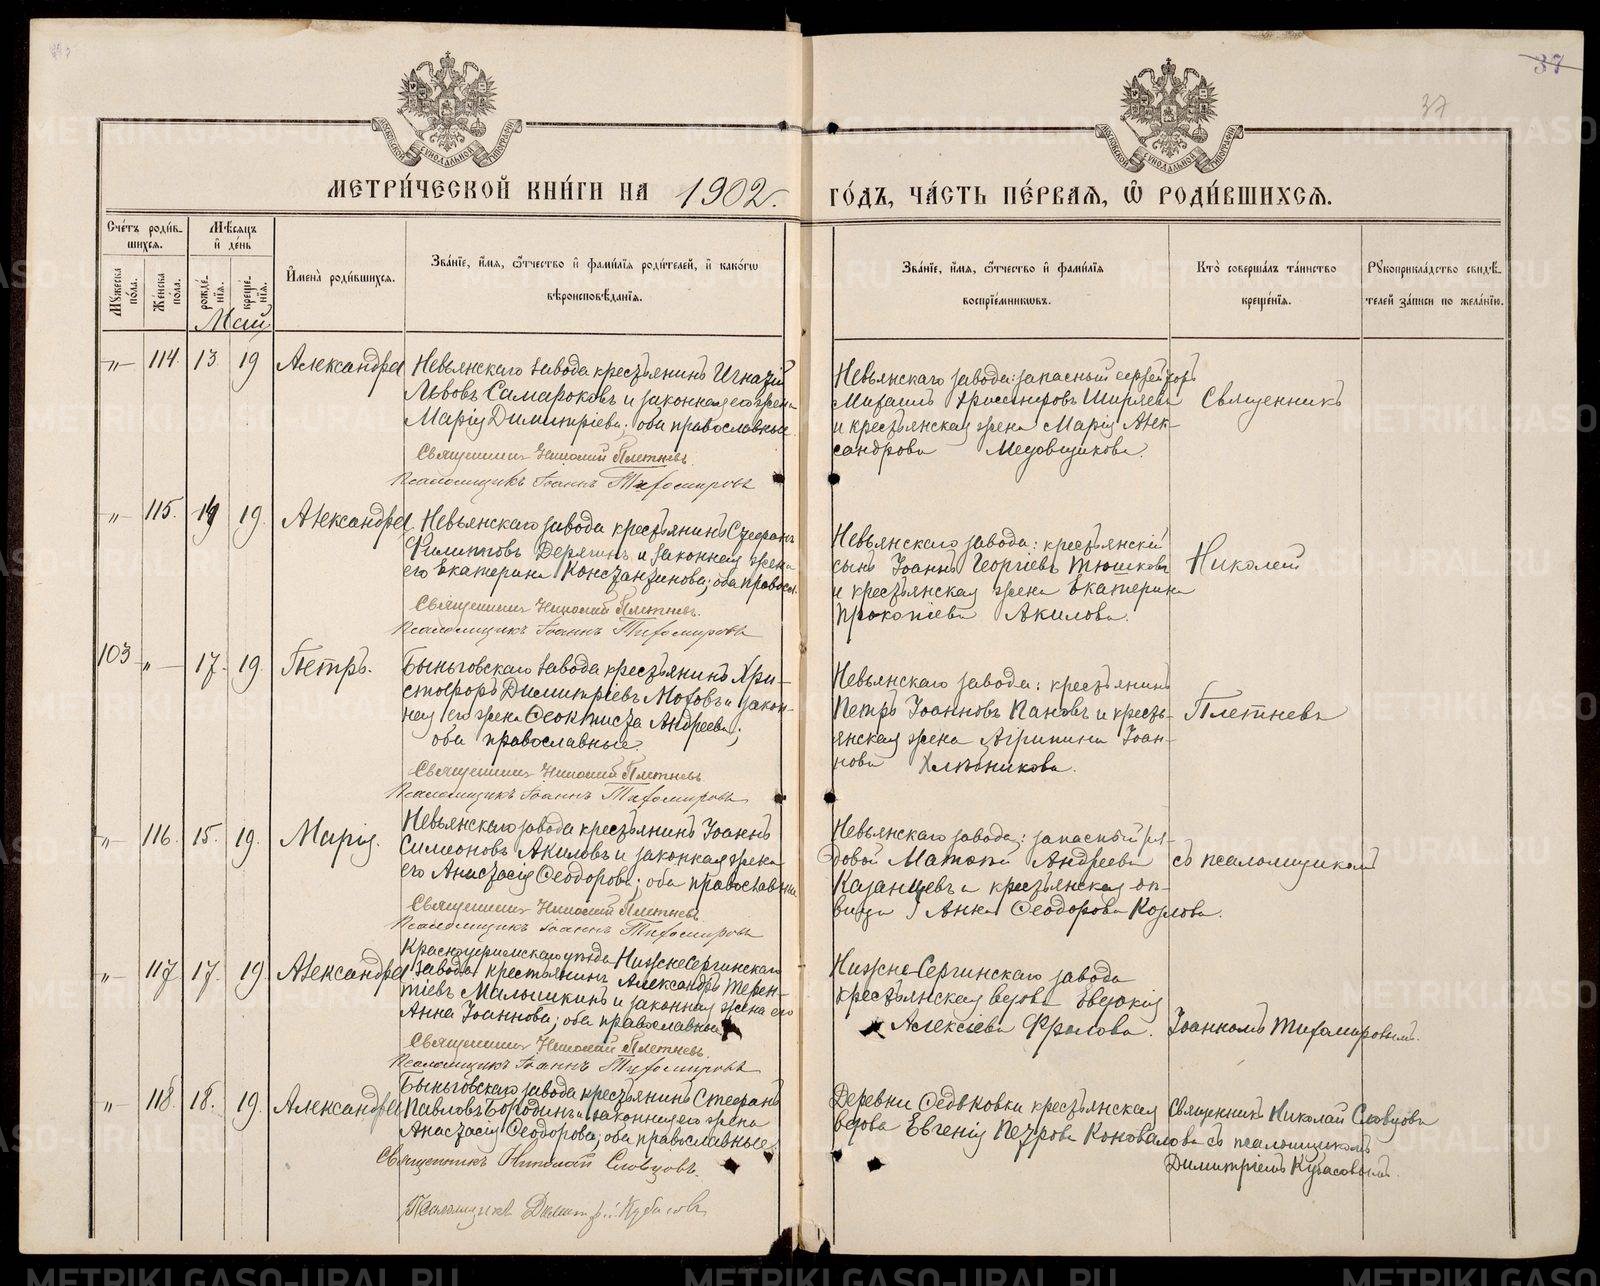 37
37
МЕТРИ́ЧЕСКОЙ КНИ́ГИ НА 1902 г.
ГО́ДЪ, ЧА́СТЬ ПЕ́РВАЯ, Ѡ҆ РОДИ́ВШИХСЯ.
Сче́тъ роди́в-
шихся.
Мꙋ́жеска по́ла.
Же́нска по́ла.
Мѣ́сяцъ
и҆ де́нь
рожде́-
нїя.
креще́-
нїя.
Май
И҆мена̀ роди́вшихся.
Зва́нїе, и҆́мя, ѻ҆́тчество и҆ фами́лїя роди́телей, и҆ како́гѡ
вѣроисповѣ́данїя.
Зва́нїе, и҆́мя, ѻ҆́тчество и҆ фами́лїя
воспрїе́мникѡвъ.
Кто̀ соверша́лъ та́инство
креще́нїя.
Рꙋкоприкла́дство свидѣ́-
телей за́писи по жела́нїю.
-„- 114. 13 19 Александра
Невьянскаго завода крестьянинъ Игнатій
Львовъ Самароковъ и законная его жена
Марія Димитріева; оба православные.
Священникъ Николай Плетневъ.
Псаломщикъ Іоаннъ Тихомировъ
Невьянскаго завода: запасный ефрейторъ
Михаилъ Ширяевъ
и крестьянская жена Марія Алек-
сандрова Медовщикова.
Священникъ
-„- 115. 14 19. Александра
Невьянскаго завода крестьянинъ Стефанъ
Филипповъ Дерягинъ и законная жена
его Екатерина Константинова; оба правосл.
Священникъ Николай Плетневъ.
Псаломщикъ Іоаннъ Тихомировъ
Невьянскаго завода: крестьянскій
сынъ Іоаннъ Георгіевъ Тюшковъ
и крестьянская жена Екатерина
Прокопіева Акилова.
Николай
103 -„- 17. 19. Петръ.
Быньговскаго завода крестьянинъ Хри-
стофоръ Димитріевъ Моховъ и закон-
ная его жена Ѳеоктиста Андреева;
оба православные.
Священникъ Николай Плетневъ
Псаломщикъ Іоаннъ Тихомировъ
Невьянскаго завода: крестьянинъ
Петръ Іоанновъ Пановъ и кресть-
янская жена Агрипина Іоан-
нова Хлѣбникова.
Плетневъ
-„- 116. 15. 19. Марія.
Невьянскаго завода крестьянинъ Іоаннъ
Симеоновъ Акиловъ и законная жена
его Анастасія Ѳеодорова; оба православные
Священникъ Николай Плетневъ.
Псаломщикъ Іоаннъ Тихомировъ
Невьянскаго завода: запасный ря-
довой Матѳій Андреевъ
Казанцевъ и крестьянская дѣ-
вица Анна Ѳеодорова Козлова.
съ псаломщикомъ
-„- 117 17. 19 Александра
Красноуфимскаго уѣзда Нижне-Сергинскаго
завода крестьянинъ Александръ Терен-
тіевъ Малышкинъ и законная жена его
Анна Іоаннова; оба православные
Священникъ Николай Плетневъ.
Псаломщикъ Іоаннъ Тихомировъ
Нижне-Сергинскаго завода
крестьянская вдова Евдокія
Алексіева Фролова.
Іоанномъ Тихомировымъ.
-„- 118. 18. 19. Александра
Быньговскаго завода крестьянинъ Стефанъ
Павловъ Бородинъ и законная его жена
Анастасія Ѳеодорова; оба православные.
Священникъ Николай Словцовъ.
Псаломщикъ Димитрій Кубасовъ
Деревни Ѳедьковки крестьянская
вдова Евгенія Петрова Коновалова
Священникъ Николай Словцовъ
съ псаломщикомъ
Димитріемъ Кубасовымъ.
METRIKI.GASO-URAL.RU